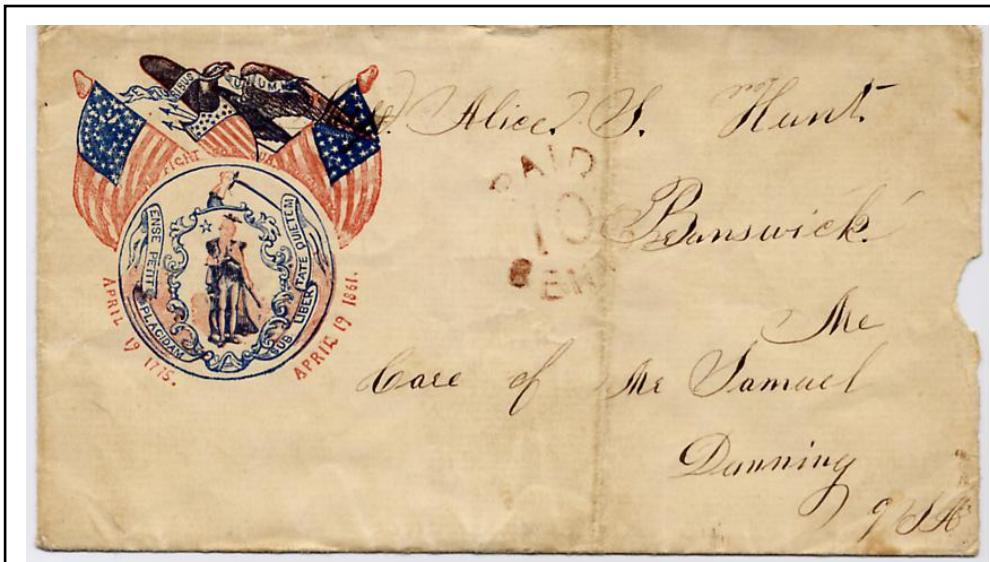 UNUM
FIGHT FOR
ENSE PETIT
PLACIDAM
SUB LIBERTATE QUIETEM
APRIL 19 1775.
APRIL 19 1861.
Alice S. Hunt.
PAID
10
CEN
Brunswick.
Me
Care of Mr Samuel
Dunning